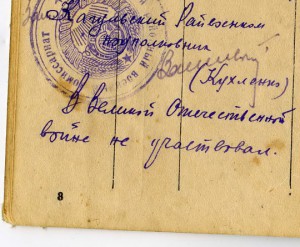 Кагульский Райвоенком
подполковник
(Кухленко)
В Великой Отечественной
войне не участвовал.
8